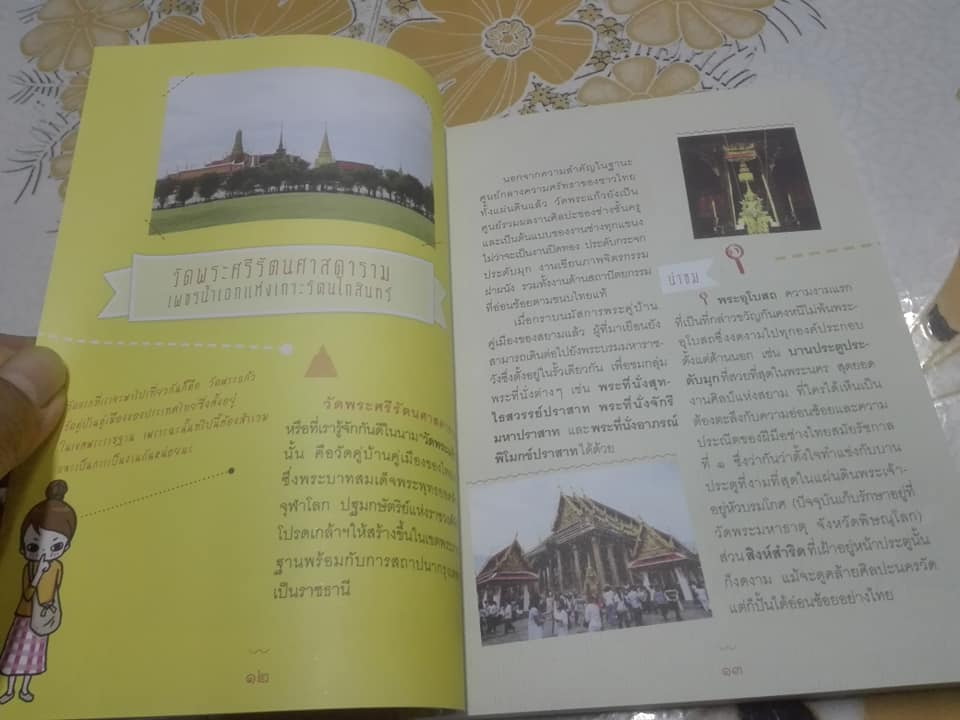 วัดพระศรีรัตนศาสดาราม
เพชรน้ำเอกแห่งเกาะรัตนโกสินทร์
วัดพระศรีรัตนศาสดา
หรือที่เรารู้จักกันดีในนาม
นั้น คือวัดคู่บ้านคู่เมืองของ
ซึ่งพระบาทสมเด็จพระพุทธ
จุฬาโลก ปฐมกษัตริย์แห่งราชวงศ์
โปรดเกล้าฯให้สร้างขึ้นในเขตพระ
ฐานพร้อมกับการสถาปนากรุง
เป็นราชธานี
๑๒
นอกจากความสำคัญในฐานะ
ศูนย์กลางความศรัทธาของชาวไทย
ทั้งแผ่นดินแล้ว วัดพระแก้วยังเป็น
ศูนย์รวมผลงานศิลปะของช่างชั้นครู
และเป็นต้นแบบของงานช่างทุกแขนง
ไม่ว่าจะเป็นงานปิดทอง ประดับกระจก
ประดับมุก งานเขียนภาพจิตรกรรม
ฝาผนัง รวมทั้งงานด้านสถาปัตยกรรม
ที่อ่อนช้อยตามขนบไทยแท้
เมื่อกราบนมัสการพระคู่บ้าน
คู่เมืองของสยามแล้ว ผู้ที่มาเยือนยัง
สามารถเดินต่อไปยังพระบรมมหาราช-
วังซึ่งตั้งอยู่ในรั้วเดียวกัน เพื่อชมกลุ่ม
พระที่นั่งต่างๆ เช่น พระที่นั่งสุท-
ไธสวรรย์ปราสาท พระที่นั่งจักรี
มหาปราสาท และพระที่นั่งอาภรณ์
พิโมกข์ปราสาท ได้ด้วย
น่าชม
พระอุโบสถ ความงามแรก
ที่เป็นที่กล่าวขวัญกันคงหนีไม่พ้นพระ-
อุโบสถซึ่งงดงามไปทุกองค์ประกอบ
ตั้งแต่ด้านนอก เช่น บานประตูประ-
ดับมุกที่สวยที่สุดในพระนคร สุดยอด
งานศิลป์แห่งสยาม ที่ใครได้เห็นเป็น
ต้องตะลึงกับความอ่อนช้อยและความ
ประณีตของฝีมือช่างไทยสมัยรัชกาล
ที่ ๑ ซึ่งว่ากันว่าตั้งใจทำแข่งกับบาน
ประตูที่งามที่สุดในแผ่นดินพระเจ้า-
อยู่หัวบรมโกศ (ปัจจุบันเก็บรักษาอยู่ที่
วัดพระมหาธาตุ จังหวัดพิษณุโลก)
ส่วน สิงห์สำริดที่เฝ้าอยู่หน้าประตูนั้น
ก็งดงาม แม้จะดูคล้ายศิลปะนครวัด
แต่ก็ปั้นได้อ่อนช้อยอย่างไทย
๑๓